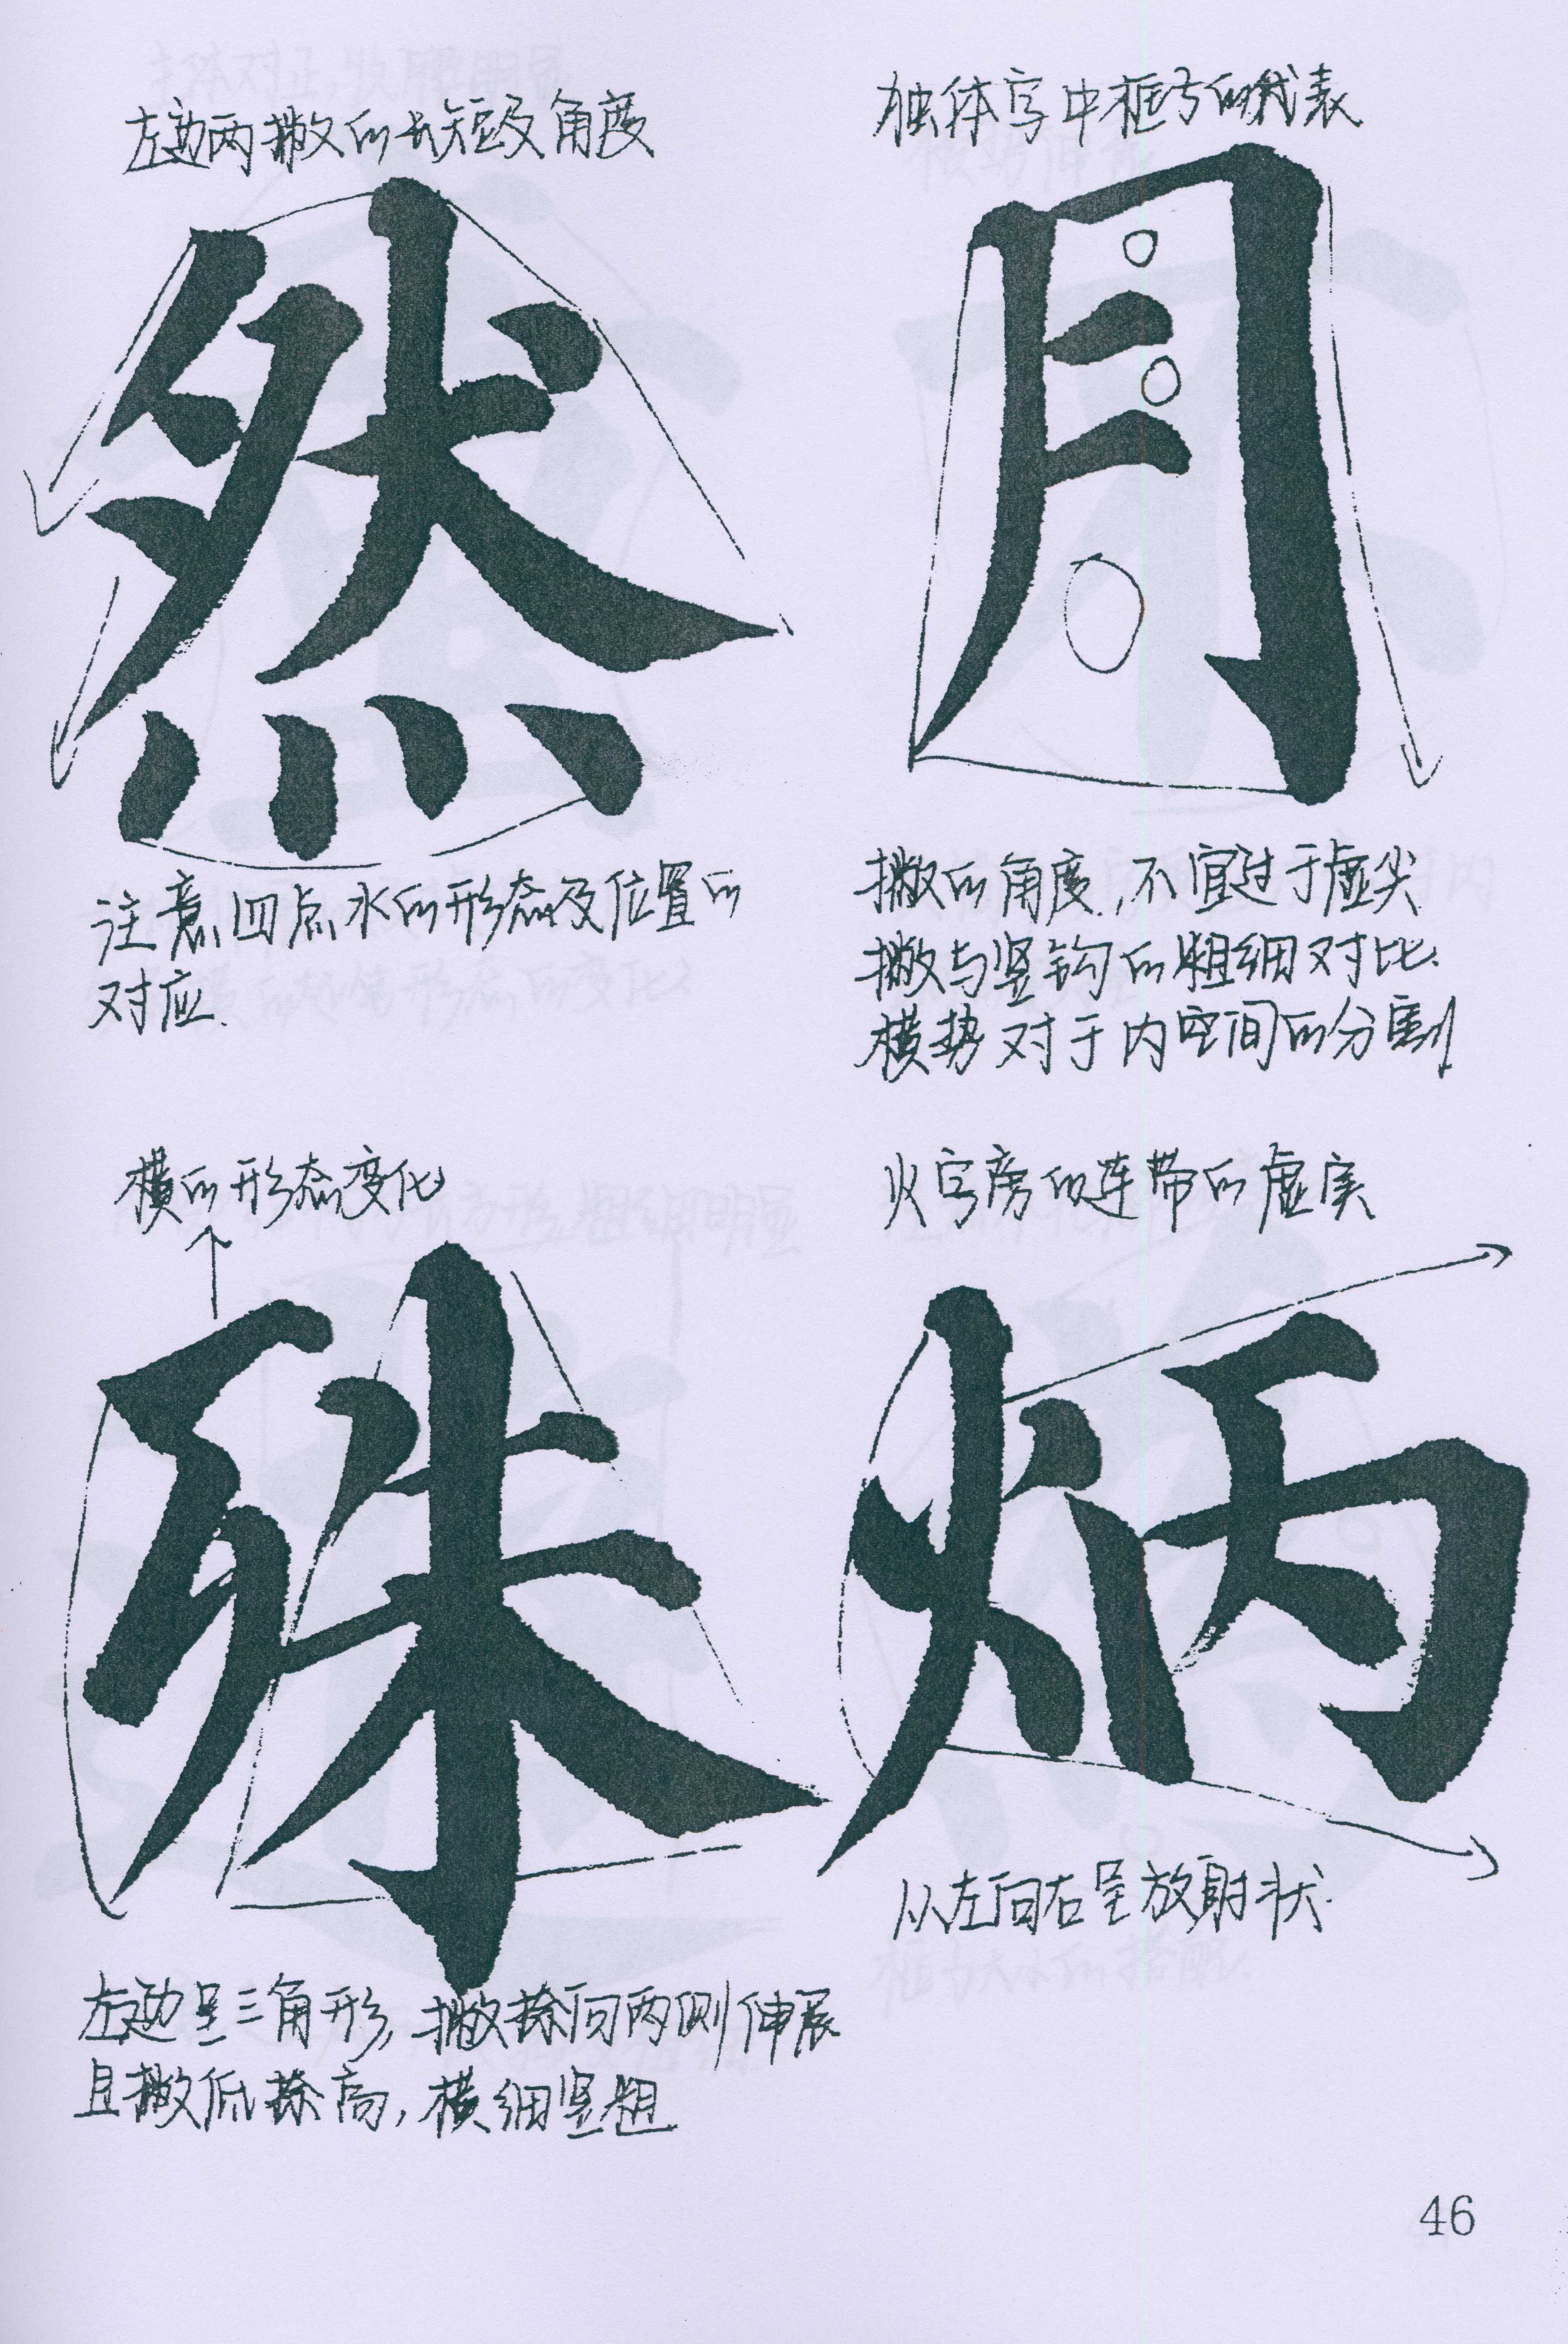 左边两撇的长短及角度
然
注意四点水的形态及位置的
对应.
独体字中框字的代表
月
撇的角度.,不宜过于虚尖
撇与竖钩的粗细对比.
横势对于内空间的分割
横的形态变化
殊
左边呈三角形,撇捺向两侧伸展
且撇低捺高,横细竖粗
火字旁的连带的虚实
炳
从左向右呈放射状.
46